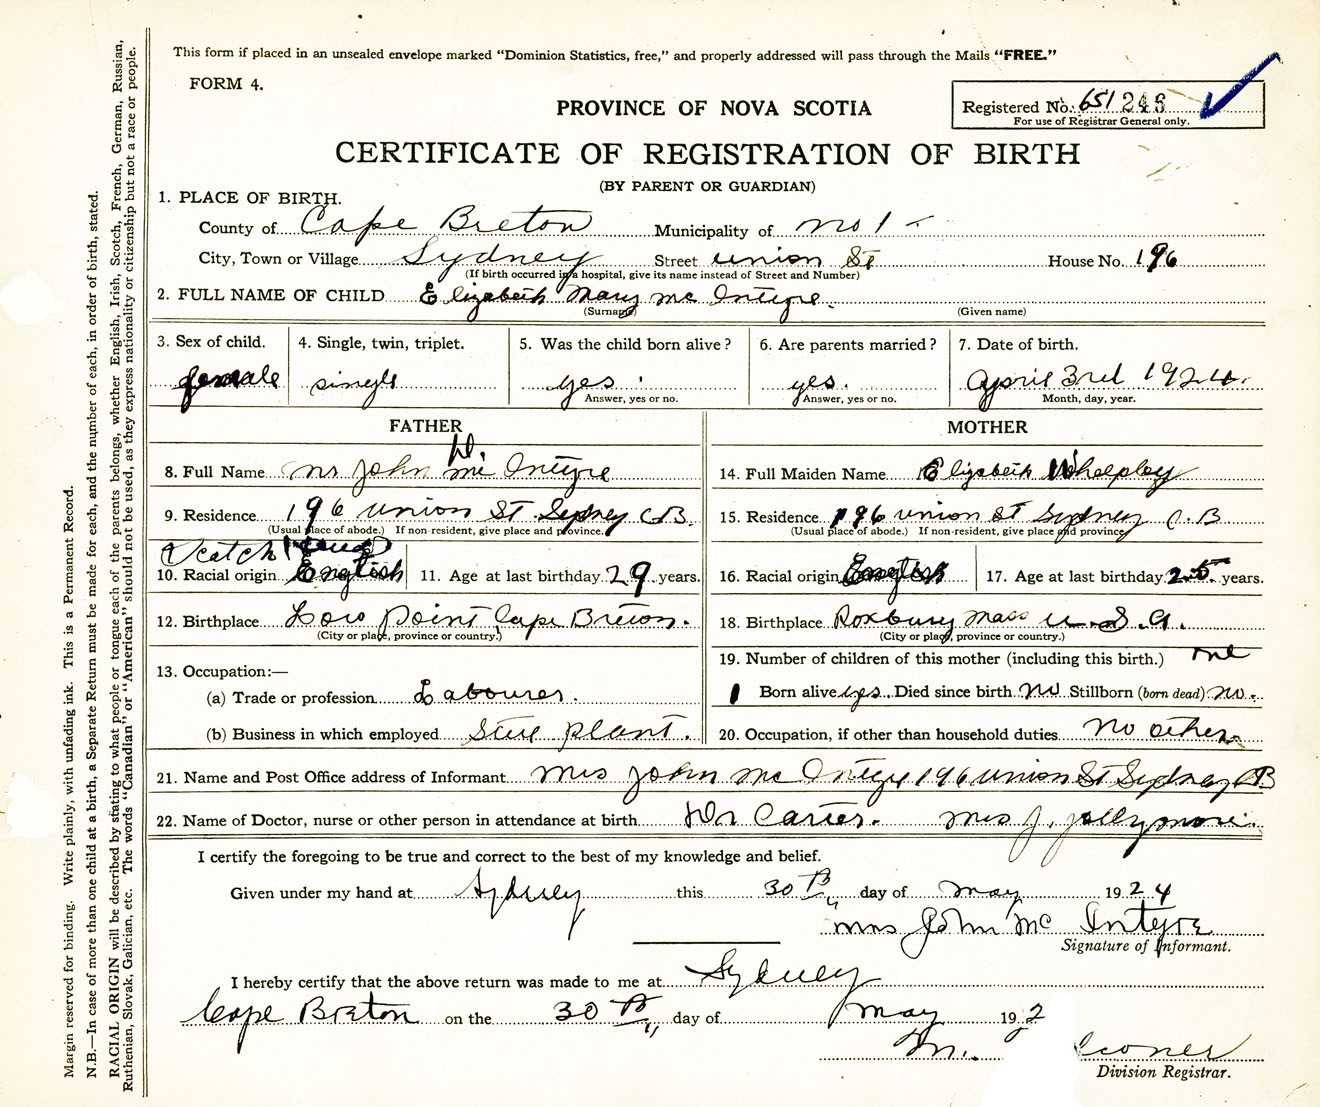 This form if placed in an unsealed envelope marked "Dominion Statistics, free," and properly addressed will pass through the Mails "FREE."
FORM 4.
Registered No. 651 246
For use of Registrar General only.
PROVINCE OF NOVA SCOTIA
CERTIFICATE OF REGISTRATION OF BIRTH
(BY PARENT OR GUARDIAN)
1. PLACE OF BIRTH.
County of Cape Breton Municipality of no 1 -
City, Town or Village Sydney Street union St House No. 196
(If birth occurred in a hospital, give its name instead of Street and Number)
2. FULL NAME OF CHILD Elizabeth Mary mc Intyre.
(Surname) (Given name)
3. Sex of child. 4. Single, twin, triplet. 5. Was the child born alive? 6. Are parents married? 7. Date of birth.
female single yes. yes. April 3rd 1924.
Answer, yes or no. Answer, yes or no. Month, day, year.
FATHER MOTHER
8. Full Name mr John D. Mc Intyre
14. Full Maiden Name Elizabeth Whelpley
9. Residence 196 union ST Sydney C.B.
(Usual place of abode.) If non-resident, give place and province.
15. Residence 196 union ST Sydney C.B
(Usual place of abode.) If non-resident, give place and province
Scotch
10. Racial origin English 11. Age at last birthday 29 years.
16. Racial origin English 17. Age at last birthday 25 years.
12. Birthplace Low Point Cape Breton.
(City or place, province or country.)
18. Birthplace Roxbury Mass U.S.A.
(City or place, province or country.)
13. Occupation:—
(a) Trade or profession Labourer.
(b) Business in which employed Steel plant.
19. Number of children of this mother (including this birth.) one
1 Born alive yes. Died since birth no Stillborn (born dead) no.
20. Occupation, if other than household duties No other
21. Name and Post Office address of Informant Mrs John Mc Intyre 196 union St Sydney CB
22. Name of Doctor, nurse or other person in attendance at birth Dr Carter. Mrs J. Jollymore.
I certify the foregoing to be true and correct to the best of my knowledge and belief.
Given under my hand at Sydney this 30th day of May 1924
Mrs John Mc Intyre
Signature of Informant.
I hereby certify that the above return was made to me at Sydney
Cape Breton on the 30th day of May 192
M.
Division Registrar.
Margin reserved for binding. Write plainly, with unfading ink. This is a Permanent Record.
N.B.—In case of more than one child at a birth, a Separate Return must be made for each, and the number of each, in order of birth, stated.
RACIAL ORIGIN will be described by stating to what people or tongue each of the parents belongs, whether English, Irish, Scotch, French, German, Russian,
Ruthenian, Slovak, Galician, etc. The words "Canadian" or "American" should not be used, as they express nationality or citizenship but not a race or people.